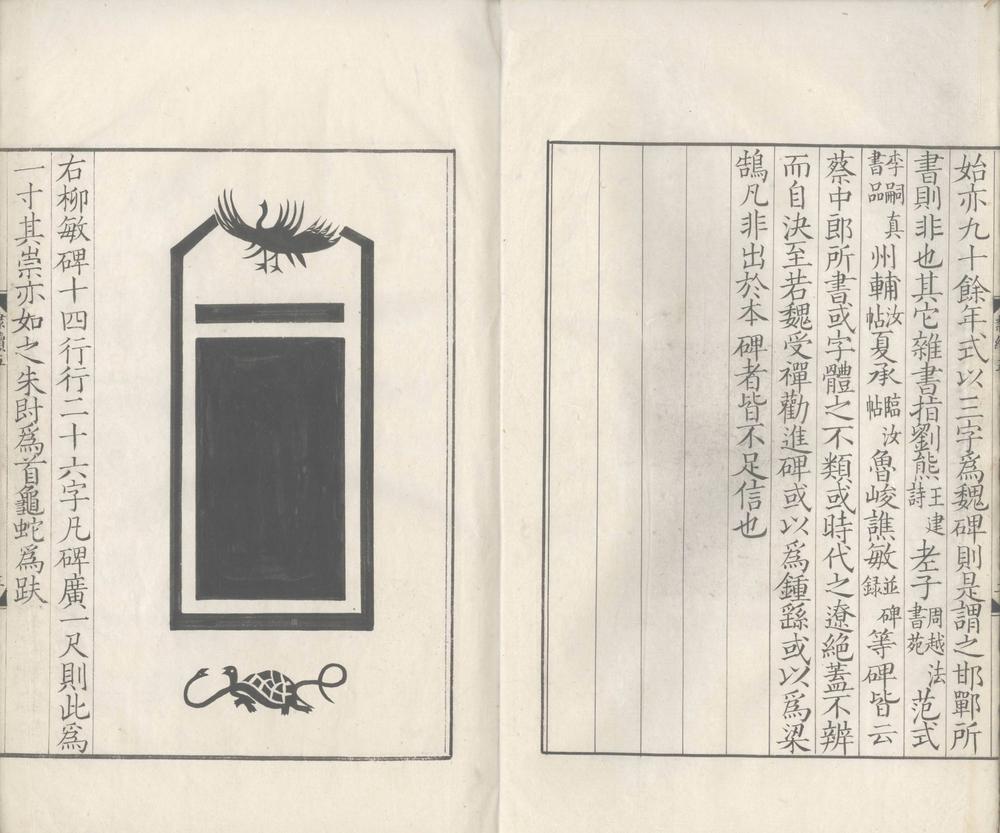 始亦九十餘年式以三字為魏碑則是謂之邯鄲所
書則非也其它雜書指劉熊王建詩老子周越法書苑范式
李嗣真書品州輔汝帖夏承臨汝帖魯峻譙敏並碑録等碑皆云
蔡中郎所書或字體之不類或時代之遼絕蓋不辨
而自決至若魏受禪勸進碑或以為鍾繇或以為梁
鵠凡非出於本碑者皆不足信也
右柳敏碑十四行行二十六字凡碑廣一尺則此為
一寸其崇亦如之朱爵為首龜蛇為趺